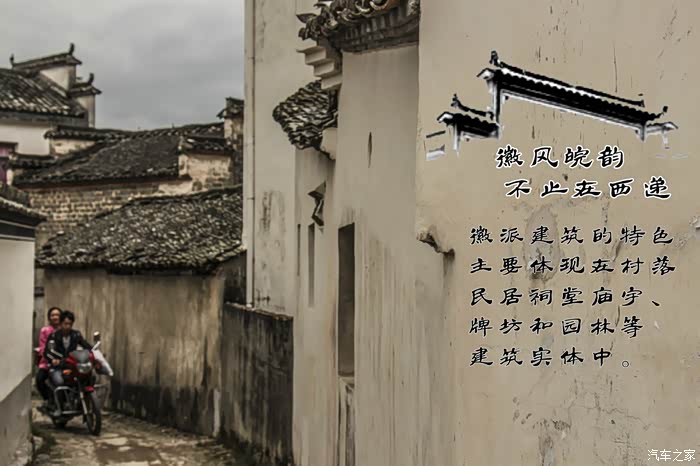 徽风皖韵
不止在西递
徽派建筑的特色
主要体现在村落
民居祠堂庙宇、
牌坊和园林等
建筑实体中。
汽车之家